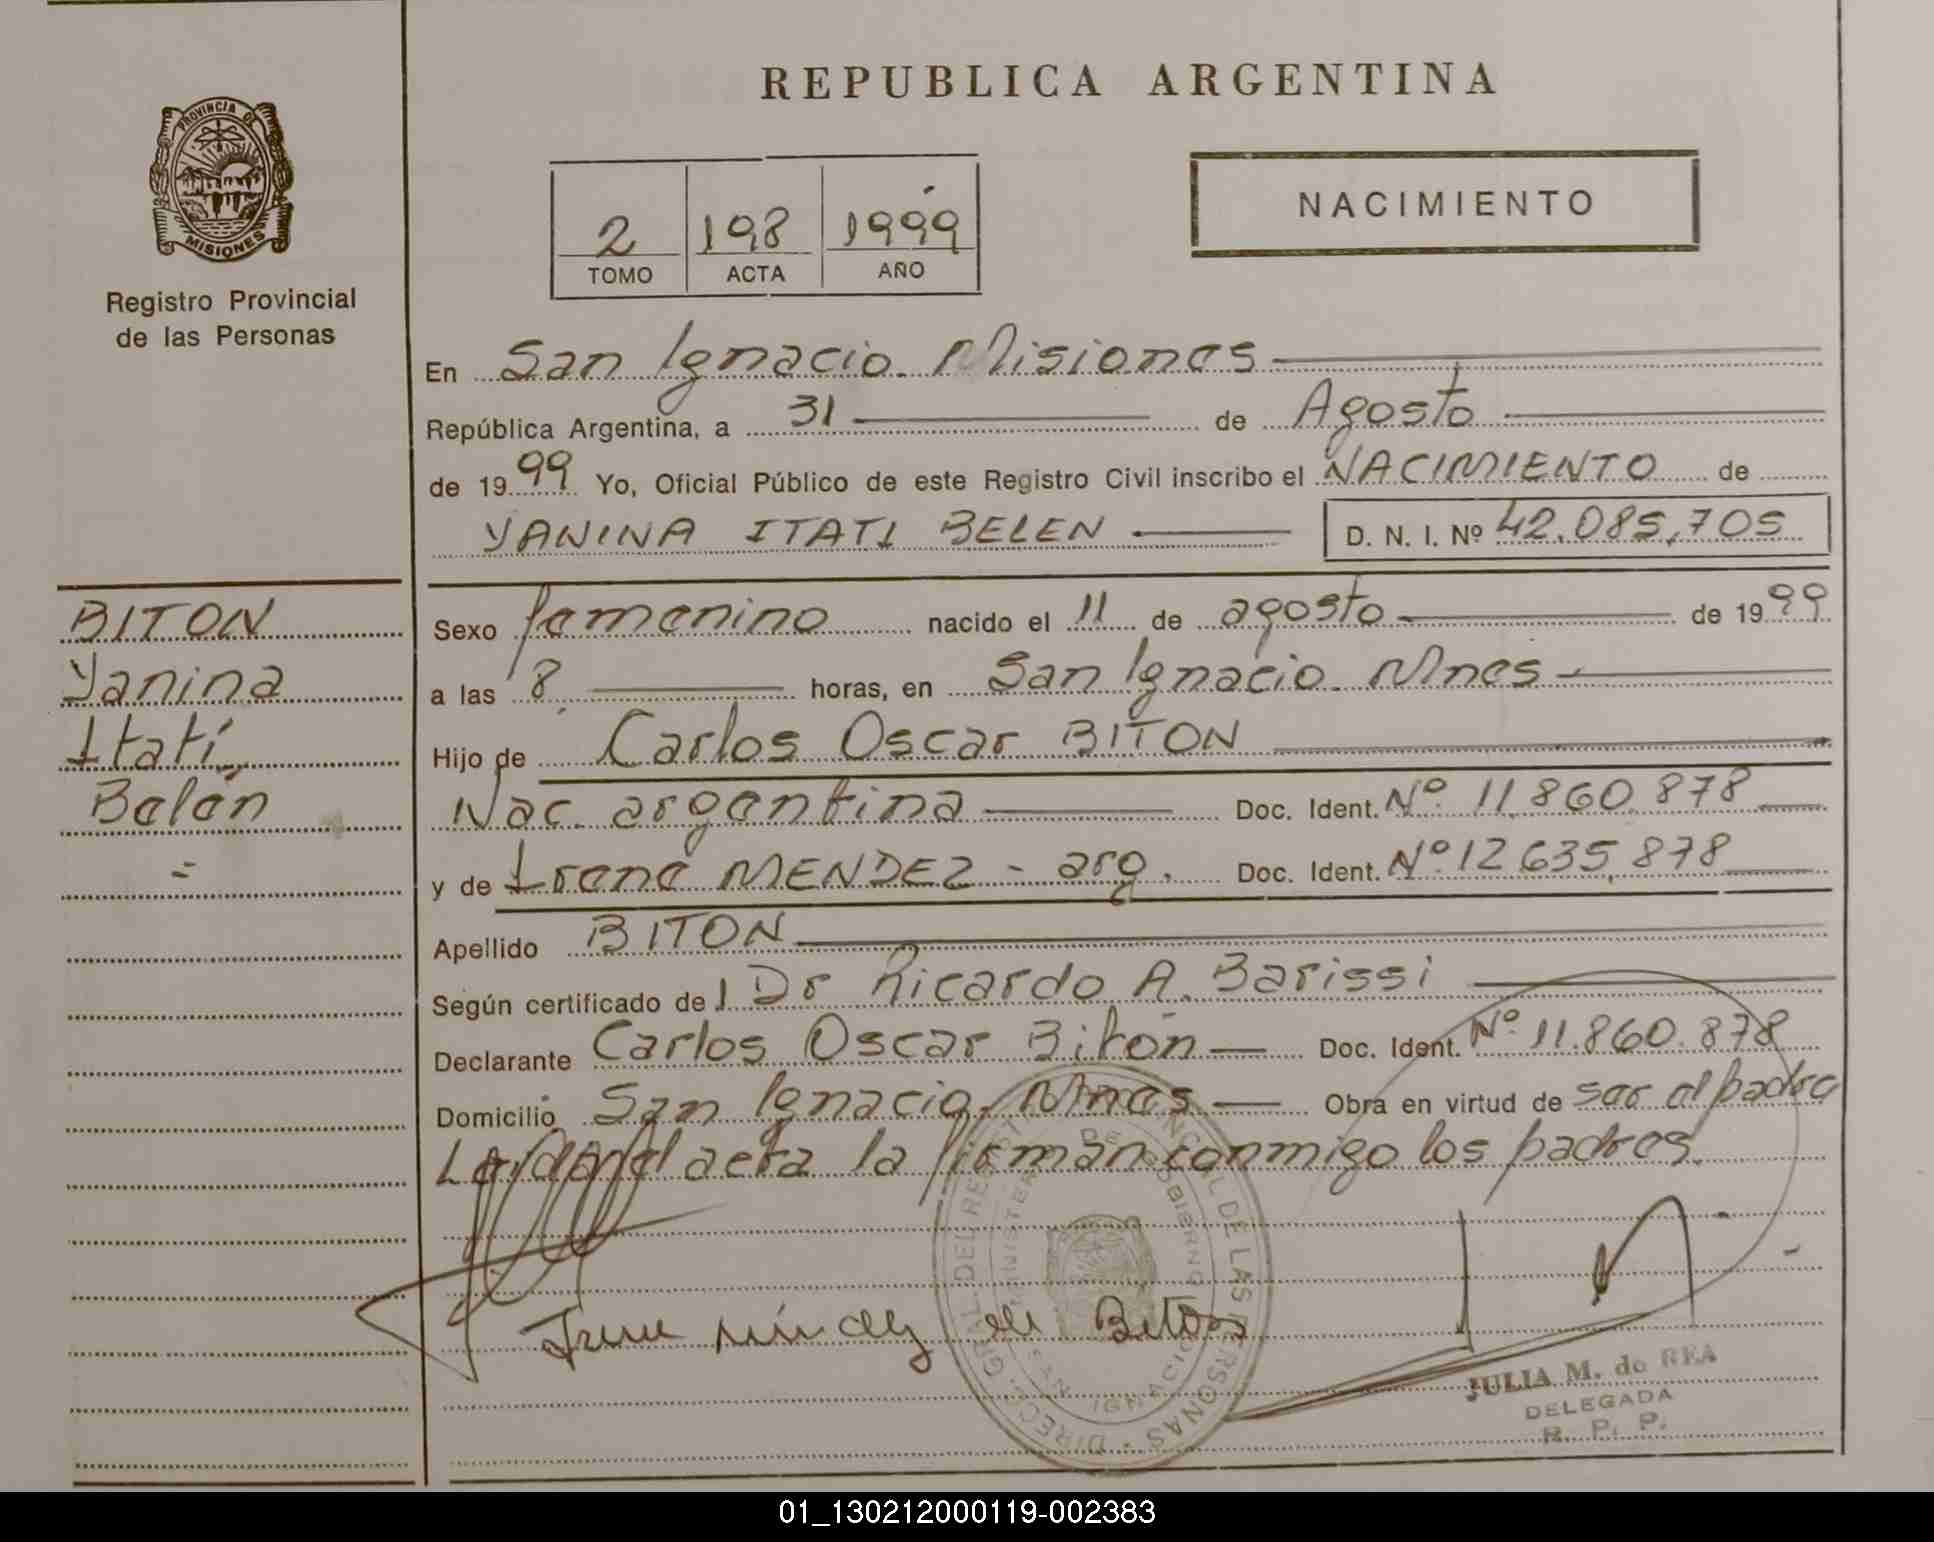 REPUBLICA ARGENTINA
PROVINCIA DE
MISIONES
Registro Provincial
de las Personas
2 198 1999
TOMO ACTA AÑO
NACIMIENTO
En San Ignacio. Misiones
República Argentina, a 31 de Agosto
de 1999 Yo, Oficial Público de este Registro Civil inscribo el NACIMIENTO de
YANINA ITATI BELEN D. N. I. Nº 42.085.705
BITON
Yanina
Itatí
Belén
=
Sexo femenino nacido el 11 de agosto de 1999
a las 8 horas, en San Ignacio. Mnes
Hijo de Carlos Oscar BITON
Nac. argentina Doc. Ident. Nº 11.860.878
y de Irene MENDEZ - arg. Doc. Ident. Nº 12.635.878
Apellido BITON
Según certificado de Dr Ricardo A. Barissi
Declarante Carlos Oscar Biton Doc. Ident. Nº 11.860.878
Domicilio San Ignacio, Mnes Obra en virtud de ser el padre
Leída el acta la firman conmigo los padres.
Irene de Biton
DIREC. GRAL. DEL REGISTRO PROVINCIAL DE LAS PERSONAS
MINISTERIO DE GOBIERNO
SAN IGNACIO
JULIA M. de REA
DELEGADA
R. P. P.
01_130212000119-002383